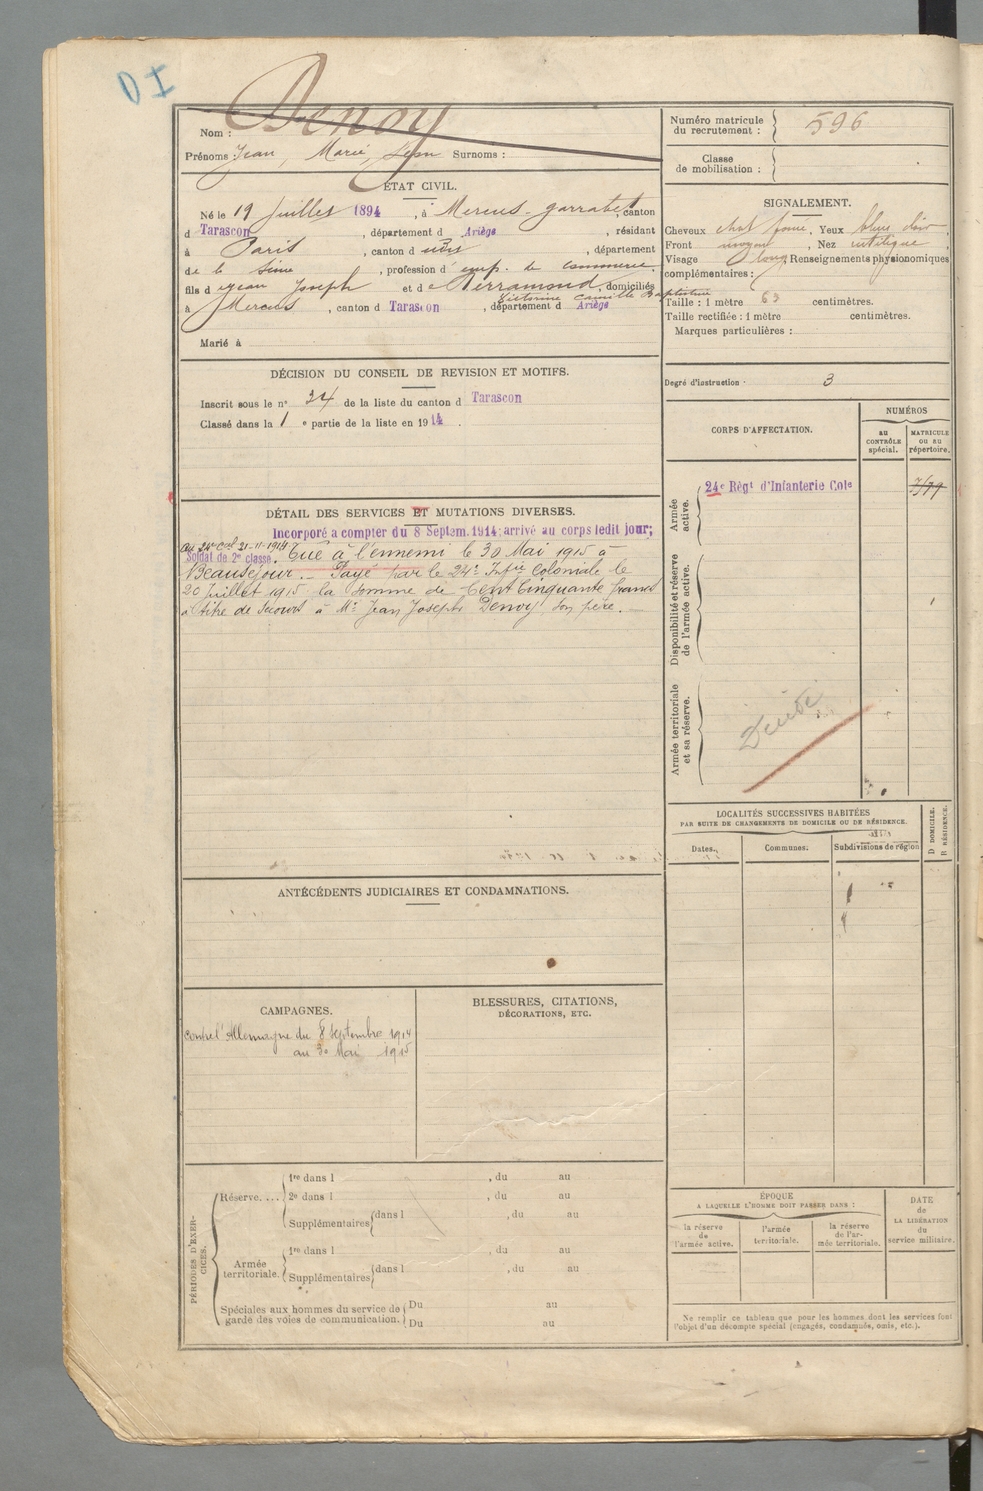 DI
Nom : Denoy
Prénoms : Jean, Marie, Léon Surnoms :
Numéro matricule du recrutement : 596
Classe de mobilisation :
ÉTAT CIVIL.
Né le 19 Juillet 1894, à Mercus-garrabet, canton
d Tarascon, département d Ariège, résidant
à Paris, canton d udit, département
de la Seine, profession d'emp. de commerce
fils d Jean Joseph et de Perramond, domiciliés
Victorine Camille Baptistine
à Mercus, canton d Tarascon, département d Ariège
Marié à
SIGNALEMENT.
Cheveux chat foncé, Yeux bleu clair
Front moyen, Nez rectiligne,
Visage long Renseignements physionomiques
complémentaires :
Taille : 1 mètre 63 centimètres.
Taille rectifiée : 1 mètre centimètres.
Marques particulières :
DÉCISION DU CONSEIL DE REVISION ET MOTIFS.
Inscrit sous le n° 34 de la liste du canton d Tarascon
Classé dans la 1 e partie de la liste en 1914.
Degré d'instruction · 3
CORPS D'AFFECTATION.
NUMÉROS
AU CONTRÔLE spécial.
MATRICULE OU AU répertoire.
Armée active.
24e Régt d'Infanterie Cole
Disponibilité et réserve de l'armée active.
Armée territoriale et sa réserve.
Décédé
DÉTAIL DES SERVICES ET MUTATIONS DIVERSES.
Incorporé a compter du 8 Septem. 1914; arrivé au corps ledit jour;
Au 24e Col 21-11-1914
Soldat de 2e classe. Tué à l'ennemi le 30 Mai 1915 à
Beauséjour. — Payé par le 24e Inf.ie Coloniale le
20 Juillet 1915 la somme de Cent Cinquante francs
à titre de secours à Mr Jean Joseph Denoy, son père. —
LOCALITÉS SUCCESSIVES HABITÉES
PAR SUITE DE CHANGEMENTS DE DOMICILE OU DE RÉSIDENCE.
Dates.
Communes.
Subdivisions de région
D DOMICILE.
R RÉSIDENCE.
ANTÉCÉDENTS JUDICIAIRES ET CONDAMNATIONS.
CAMPAGNES.
Contre l'Allemagne du 8 septembre 1914
au 30 Mai 1915
BLESSURES, CITATIONS,
DÉCORATIONS, ETC.
PÉRIODES D'EXERCICES.
Réserve....
1re dans l , du au
2e dans l , du au
Supplémentaires dans l , du au
Armée territoriale.
1re dans l , du au
Supplémentaires dans l , du au
Spéciales aux hommes du service de garde des voies de communication.
Du au
Du au
ÉPOQUE
A LAQUELLE L'HOMME DOIT PASSER DANS :
la réserve de l'armée active.
l'armée territoriale.
la réserve de l'armée territoriale.
DATE de LA LIBÉRATION du service militaire.
Ne remplir ce tableau que pour les hommes dont les services font
l'objet d'un décompte spécial (engagés, condamnés, omis, etc.).